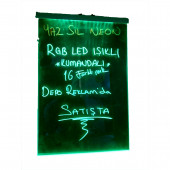 YAZ SİL NEON
RGB LED IŞIKLI
KUMANDALI
16 Farklı renk
Depo Reklamda
SATIŞTA